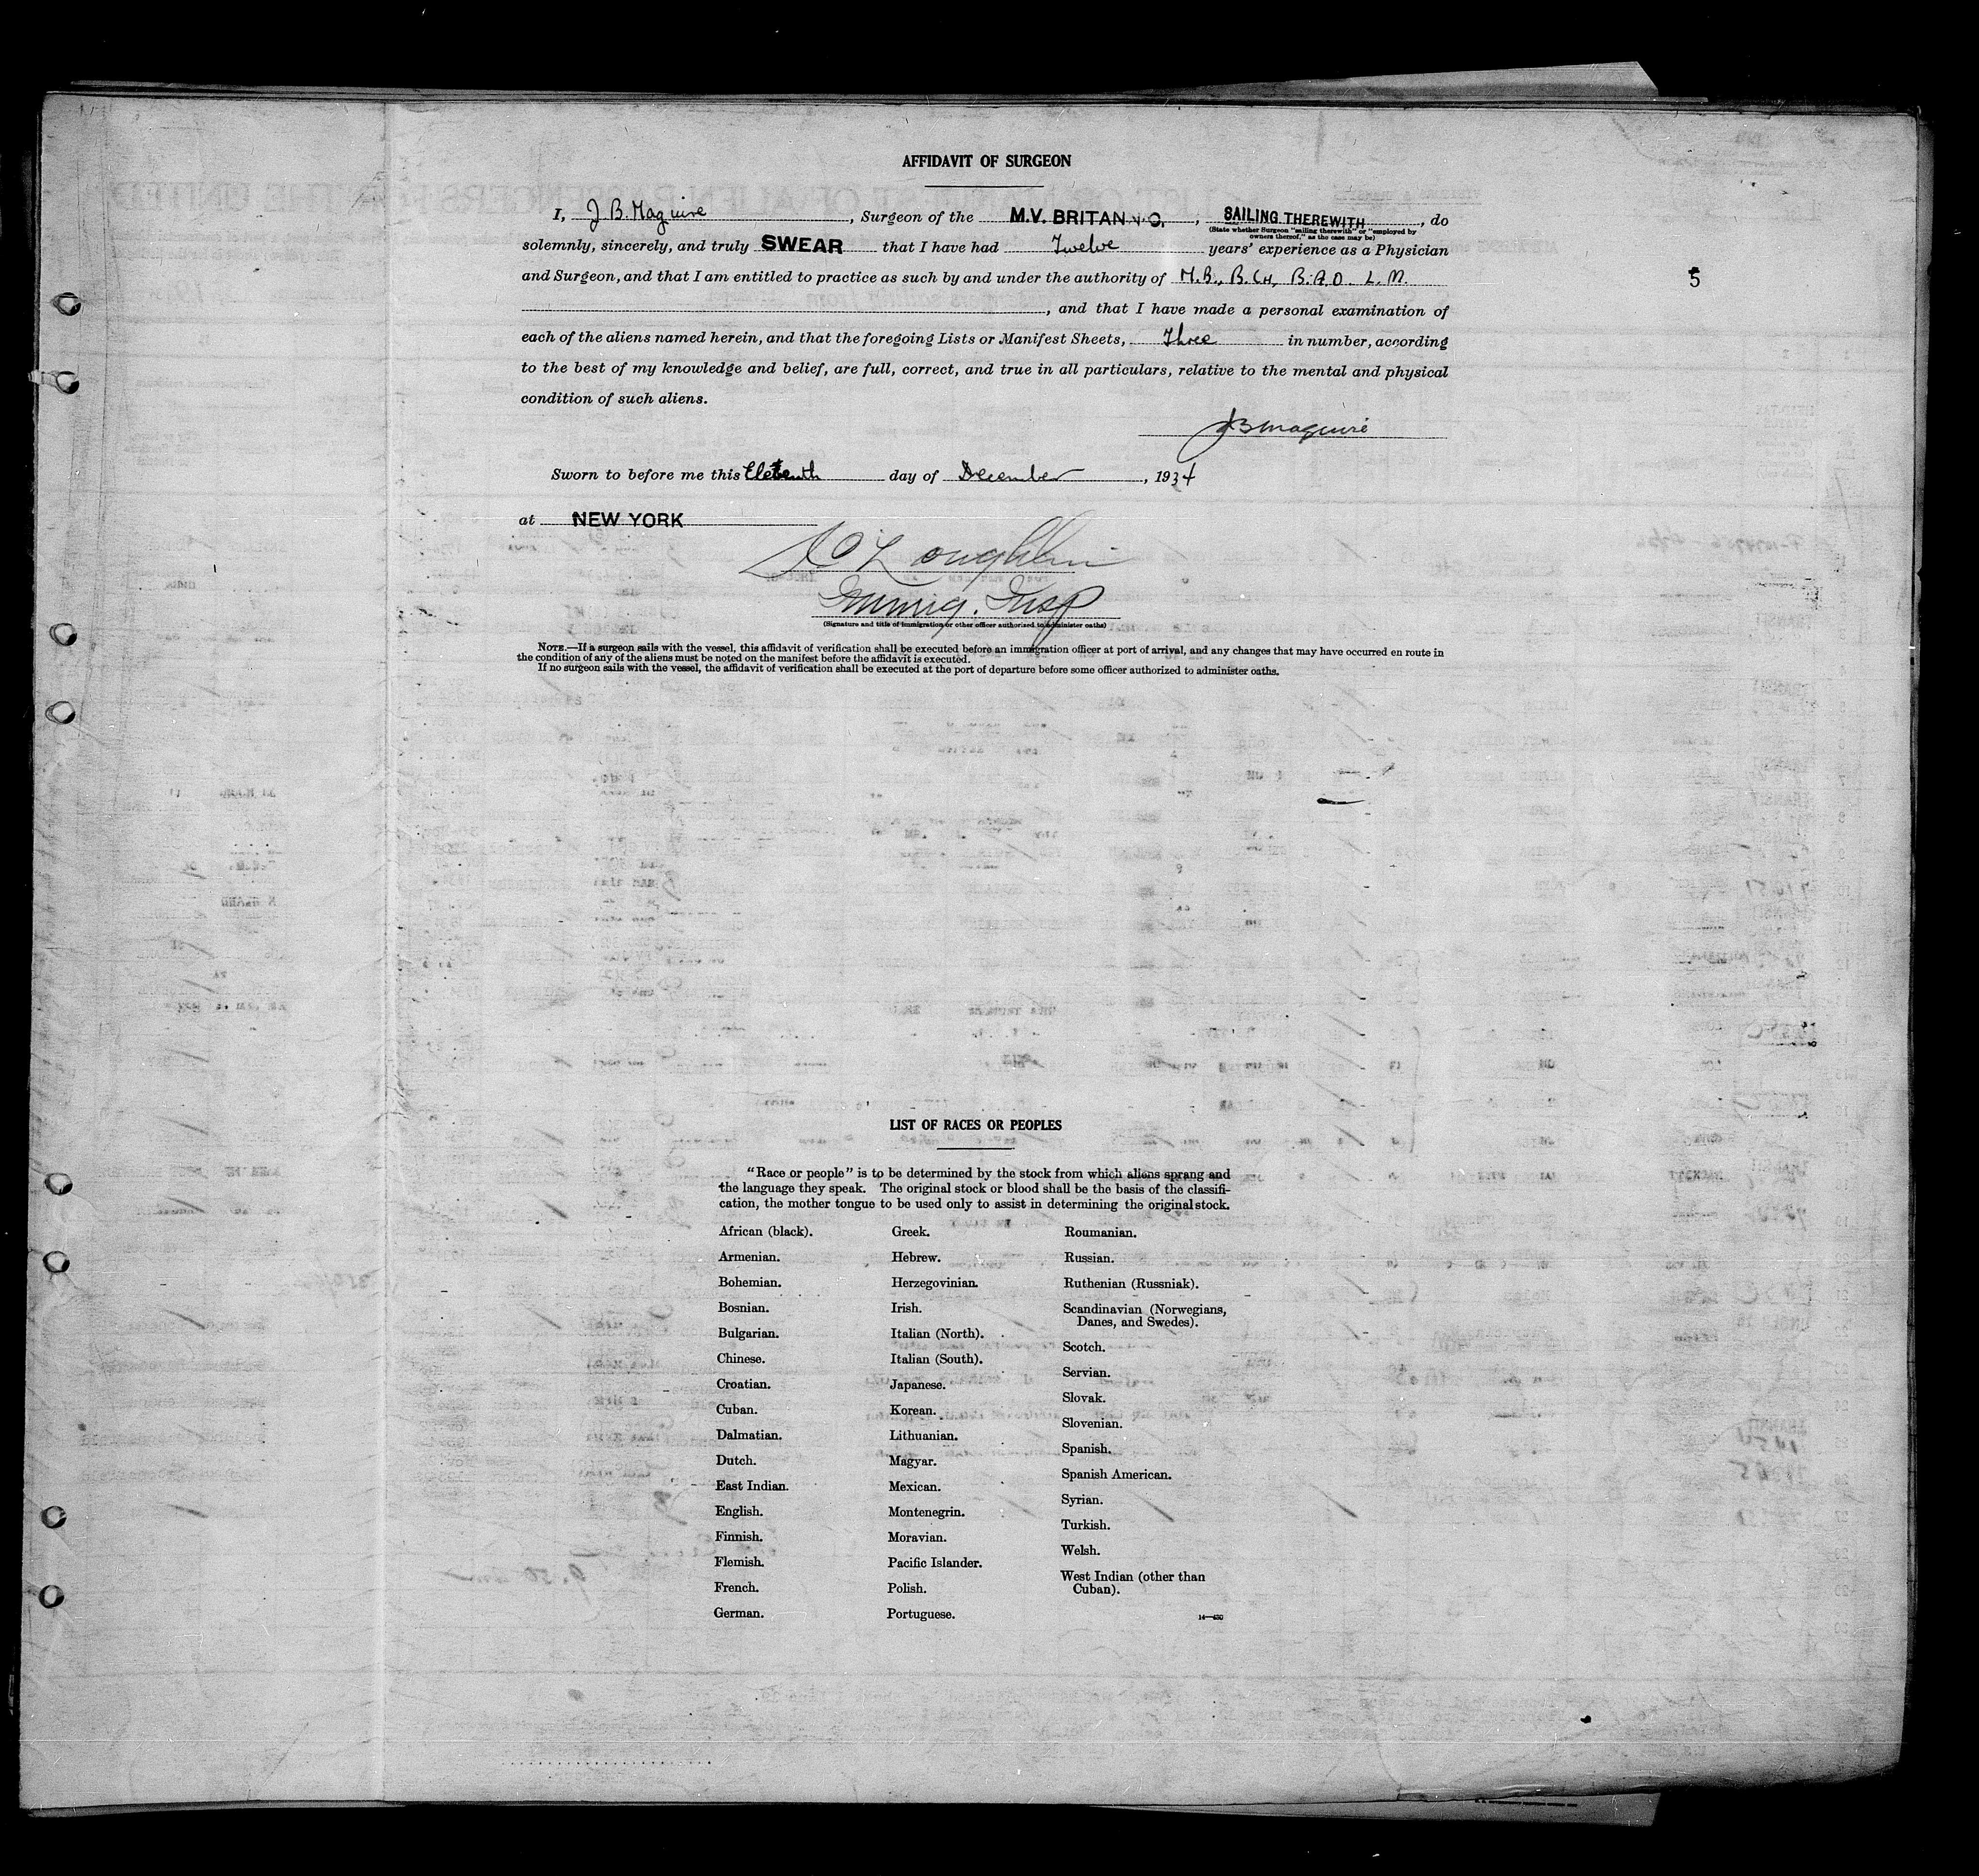 AFFIDAVIT OF SURGEON
I, J. B. Maguire, Surgeon of the M.V. BRITANNIC, SAILING THEREWITH, do
(State whether Surgeon "sailing therewith" or "employed by
owners thereof," as the case may be)
solemnly, sincerely, and truly SWEAR that I have had Twelve years' experience as a Physician
and Surgeon, and that I am entitled to practice as such by and under the authority of M.B., B.CH, B.A.O. L.M.
5
, and that I have made a personal examination of
each of the aliens named herein, and that the foregoing Lists or Manifest Sheets, Three in number, according
to the best of my knowledge and belief, are full, correct, and true in all particulars, relative to the mental and physical
condition of such aliens.
JBMaguire
Sworn to before me this Eleventh day of December, 1934
at NEW YORK
Immig. Insp
(Signature and title of immigration or other officer authorized to administer oaths)
NOTE.—If a surgeon sails with the vessel, this affidavit of verification shall be executed before an immigration officer at port of arrival, and any changes that may have occurred en route in
the condition of any of the aliens must be noted on the manifest before the affidavit is executed.
If no surgeon sails with the vessel, the affidavit of verification shall be executed at the port of departure before some officer authorized to administer oaths.
LIST OF RACES OR PEOPLES
"Race or people" is to be determined by the stock from which aliens sprang and
the language they speak. The original stock or blood shall be the basis of the classifi-
cation, the mother tongue to be used only to assist in determining the original stock.
African (black).
Armenian.
Bohemian.
Bosnian.
Bulgarian.
Chinese.
Croatian.
Cuban.
Dalmatian.
Dutch.
East Indian.
English.
Finnish.
Flemish.
French.
German.
Greek.
Hebrew.
Herzegovinian.
Irish.
Italian (North).
Italian (South).
Japanese.
Korean.
Lithuanian.
Magyar.
Mexican.
Montenegrin.
Moravian.
Pacific Islander.
Polish.
Portuguese.
Roumanian.
Russian.
Ruthenian (Russniak).
Scandinavian (Norwegians,
Danes, and Swedes).
Scotch.
Servian.
Slovak.
Slovenian.
Spanish.
Spanish American.
Syrian.
Turkish.
Welsh.
West Indian (other than
Cuban).